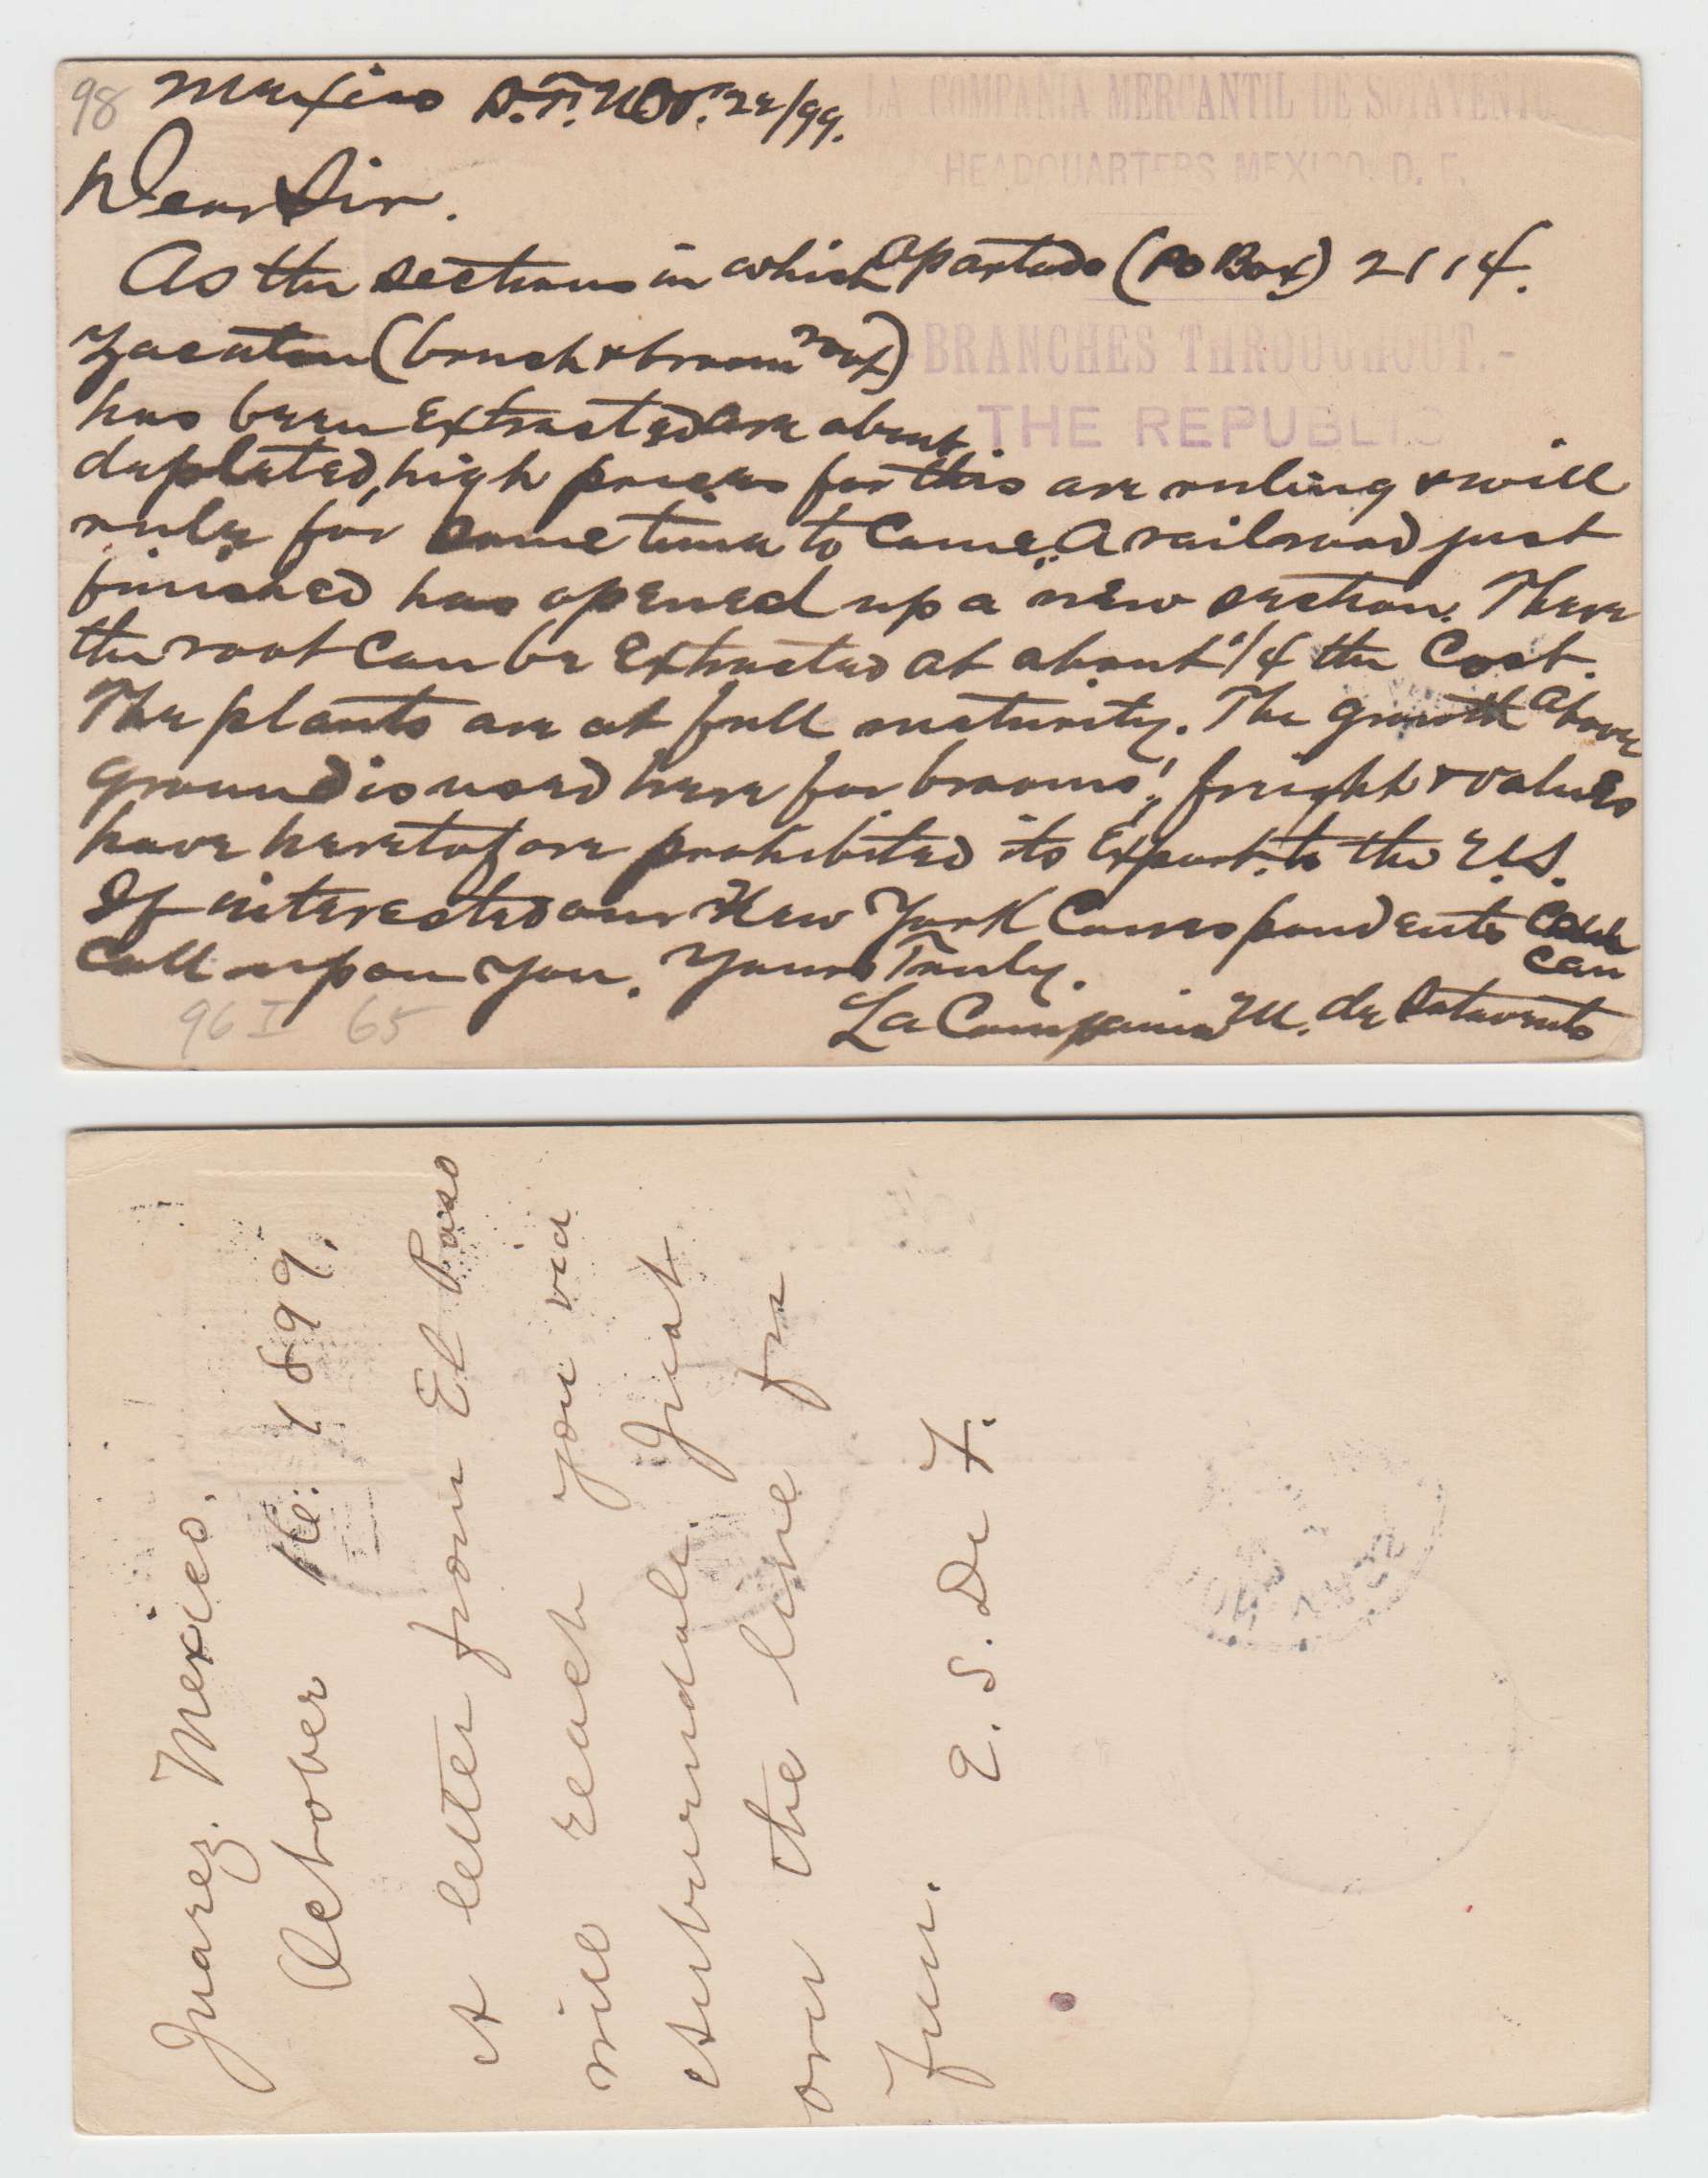 98 Mexico D.F. Nov. 22/99.
LA COMPAÑIA MERCANTIL DE SOTAVENTO
HEADQUARTERS MEXICO, D. F.
Dear Sir.
As the sections in which Apartado (PO Box) 2114.
Zacaton (brush & broom root)
-BRANCHES THROUGHOUT.-
has been Extracted are about
THE REPUBLIC
depleted, high prices for this are ruling & will
rule for some time to Come. A railroad just
finished has opened up a new section. There
the root Can be Extracted at about 1/4 the Cost.
The plants are at full maturity. The growth above
ground is used here for brooms, freight & values
have heretofore prohibited its Export to the U.S.
If interested our New York Correspondents
can
Call upon You. Yours Truly.
La Compania M. de Sotavento
96 I 65
Juarez. Mexico.
October 16. 1899.
A letter from El Paso
will reach you via
Auburndale. Just
over the line for
fun.
E. S. De F.